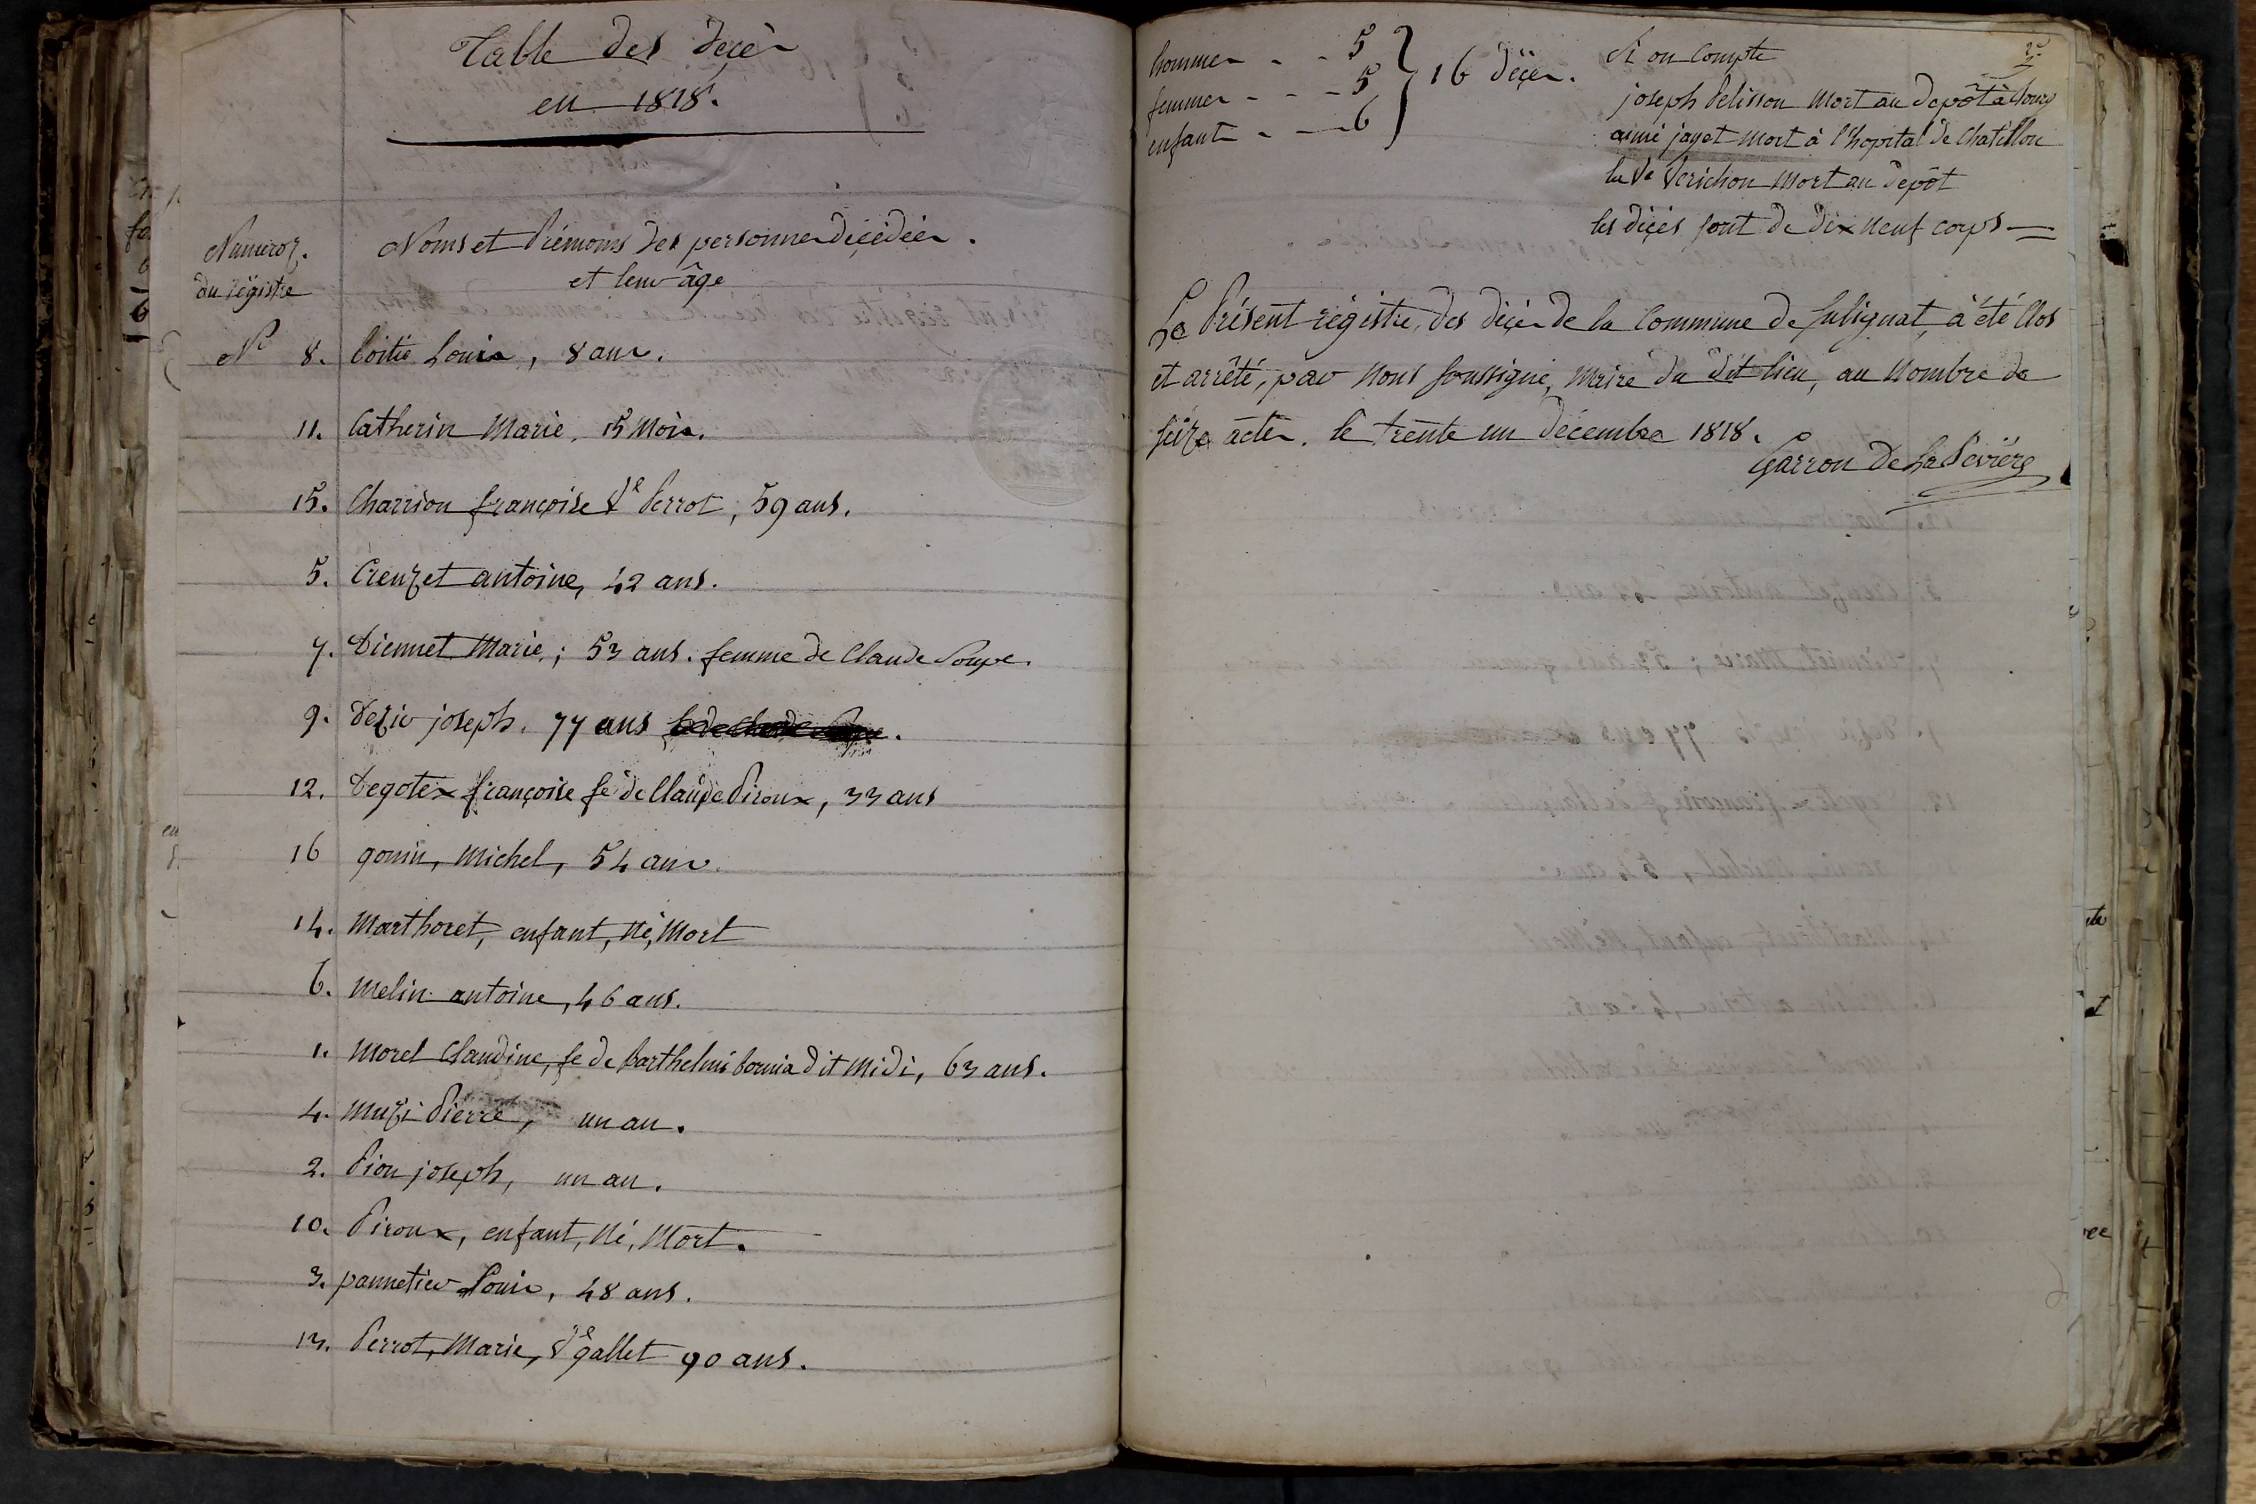 Table des decès
en 1818.
Numeroz.
du régistre
Noms et Prénoms des personnes décédées.
et leur âge
N° 8. Coitié Louis, 8 ans.
11. Catherin Marie, 15 Mois.
15. Charrion françoise Vᵉ Perrot, 59 ans.
5. Creuzet antoine, 42 ans.
7. Diennet Marie; 53 ans. femme de Claude Soupe.
9. Deziv joseph. 77 ans
12. Degotex françoise fᵉ de Claude Piroux, 33 ans
16 gonin, Michel, 54 ans.
14. Marthoret, enfant, Né, Mort
6. Melin antoine, 46 ans.
1. Morel Claudine, fe de barthelmi bornia dit Midi, 63 ans.
4. Muzi Pierre, un an.
2. Pion joseph, un an.
10. Piroux, enfant, Né, Mort.
3. pannetier Louis, 48 ans.
13. Perrot, Marie, Vᵉ gallet 90 ans.
hommes - - 5
femmes - - - 5
enfants - - - 6
16 décès.
Si on Compte
joseph Pelisson Mort au depôt à bourg
aimé jayet mort à l'hopital de Chatillon
la Vᵉ Perichon Mort au depôt
les décès sont de Dix Neuf corps —
Le Présent régistre, des décès de la Commune de Sulignat, à été Clos
et arrêté, par Nous soussigné, Maire du dit lieu, au Nombre de
seize actes. le trente un décembre 1818.
Garron de La Bévière